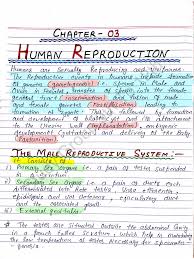 CHAPTER - 03
HUMAN REPRODUCTION
Humans are Sexually Reproducing and Viviparous
The Reproductive events in Humans include formation
of gametes (gametogenesis) i.e. Sperms in Male and
Ovum in Female, transfer of Sperms into the female
genital tract (insemination) and fusion of male
and female gametes (fertilisation) leading to
formation of zygote. This is followed by formation
and development of blastocyst and its attachment
to the Uterine wall (implantation), embryonic
development (gestation) and delivery of the baby
(Parturition)
THE MALE REPRODUCTIVE SYSTEM:-
It Consists of
i) Primary Sex Organs i.e. a pair of testes suspended
in a scrotum
ii) Secondary Sex Organs i.e. a pair of ducts each
differentiated into Rete testis, Vasa efferentia,
epididymis and Vas deferens, ejaculatory duct
and the associated glands
iii) External genitalia
The testes are situated outside the abdominal cavity
in a pouch called Scrotum which help in maintaining
the low temperature of testes necessary for spermato-
genesis